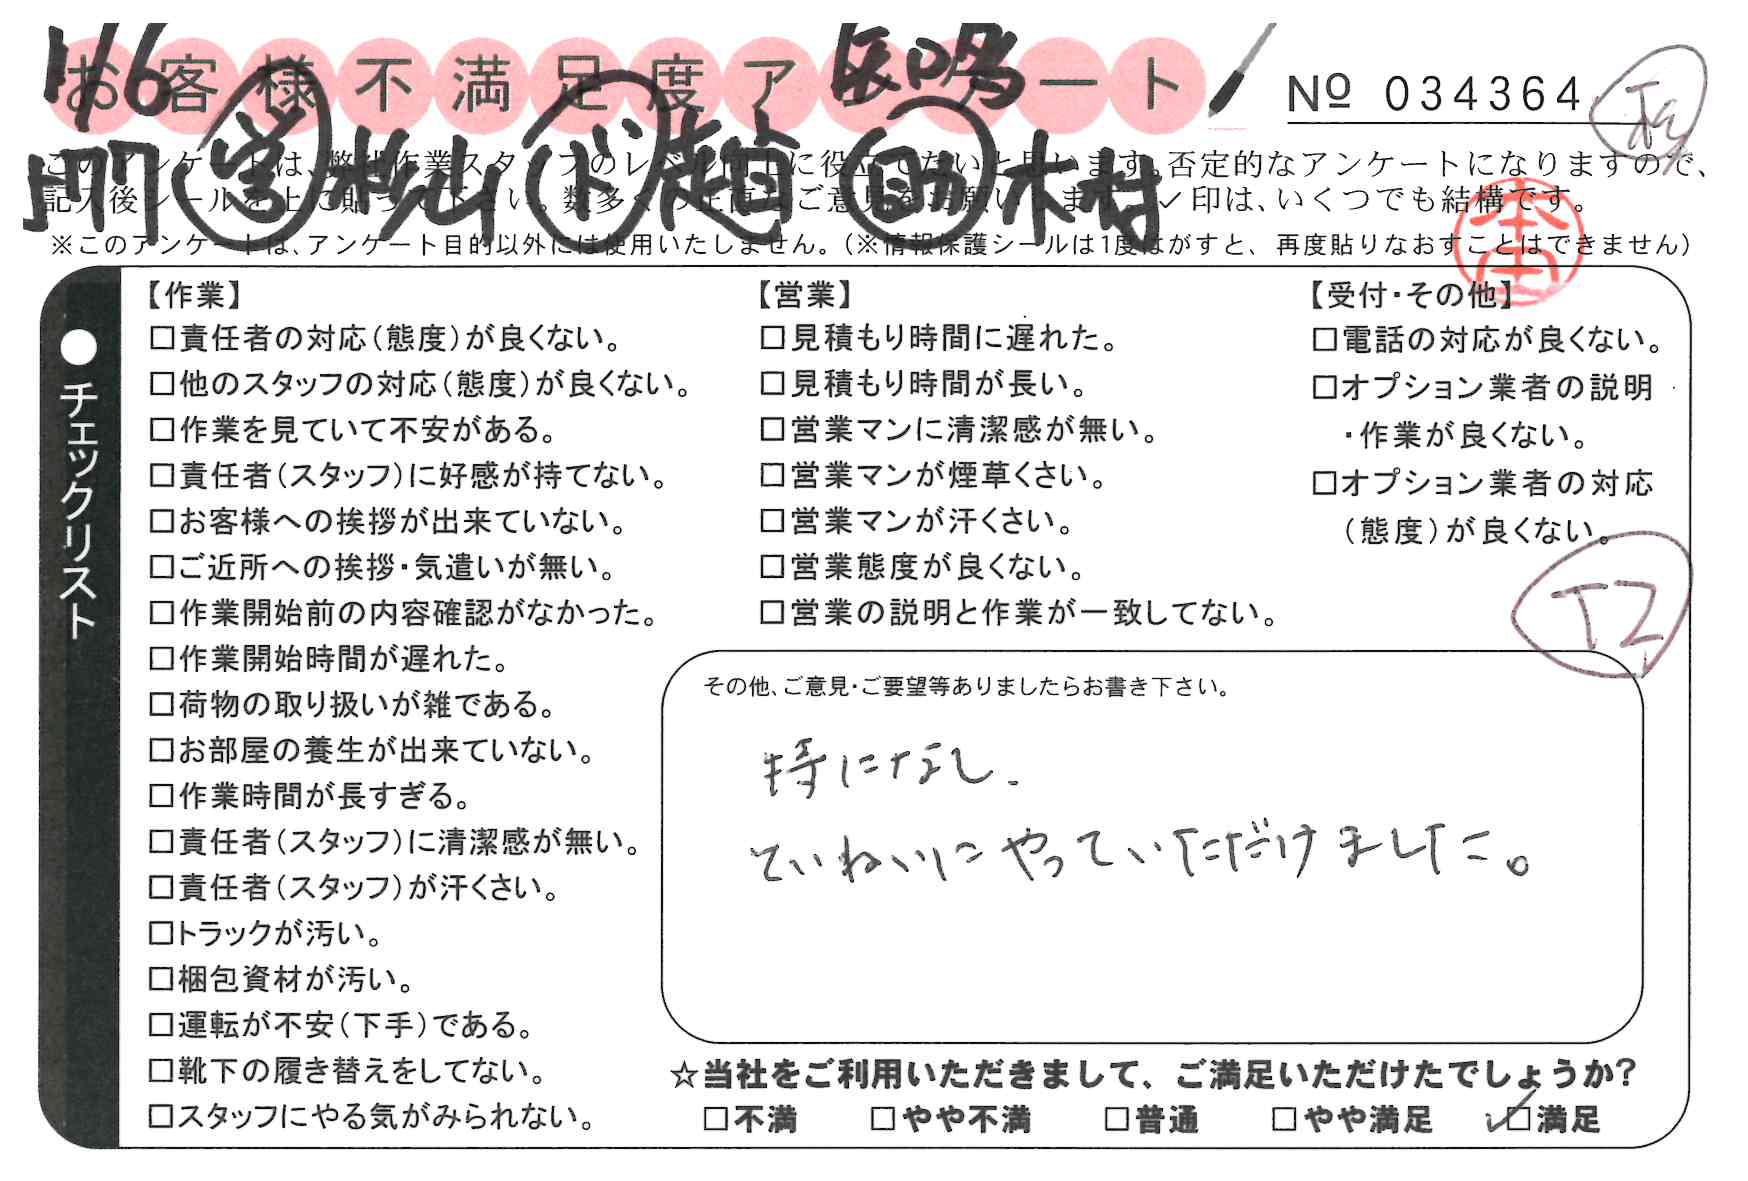 お客様不満足度アンケート
1/6
長嶋
№ 034364
営 ド 助 木村
このアンケートは、弊社作業スタッフのレベル向上に役立てたいと思います。否定的なアンケートになりますので、
記入後シールを上に貼って下さい。数多くの正直なご意見をお願いします。✓印は、いくつでも結構です。
※このアンケートは、アンケート目的以外には使用いたしません。(※情報保護シールは1度はがすと、再度貼りなおすことはできません)
●チェックリスト
【作業】
□責任者の対応(態度)が良くない。
□他のスタッフの対応(態度)が良くない。
□作業を見ていて不安がある。
□責任者(スタッフ)に好感が持てない。
□お客様への挨拶が出来ていない。
□ご近所への挨拶・気遣いが無い。
□作業開始前の内容確認がなかった。
□作業開始時間が遅れた。
□荷物の取り扱いが雑である。
□お部屋の養生が出来ていない。
□作業時間が長すぎる。
□責任者(スタッフ)に清潔感が無い。
□責任者(スタッフ)が汗くさい。
□トラックが汚い。
□梱包資材が汚い。
□運転が不安(下手)である。
□靴下の履き替えをしてない。
□スタッフにやる気がみられない。
【営業】
□見積もり時間に遅れた。
□見積もり時間が長い。
□営業マンに清潔感が無い。
□営業マンが煙草くさい。
□営業マンが汗くさい。
□営業態度が良くない。
□営業の説明と作業が一致してない。
【受付・その他】
□電話の対応が良くない。
□オプション業者の説明
・作業が良くない。
□オプション業者の対応
(態度)が良くない。
その他、ご意見・ご要望等ありましたらお書き下さい。
特になし.
ていねいにやっていただけました。
☆当社をご利用いただきまして、ご満足いただけたでしょうか?
□不満 □やや不満 □普通 □やや満足 ☑満足